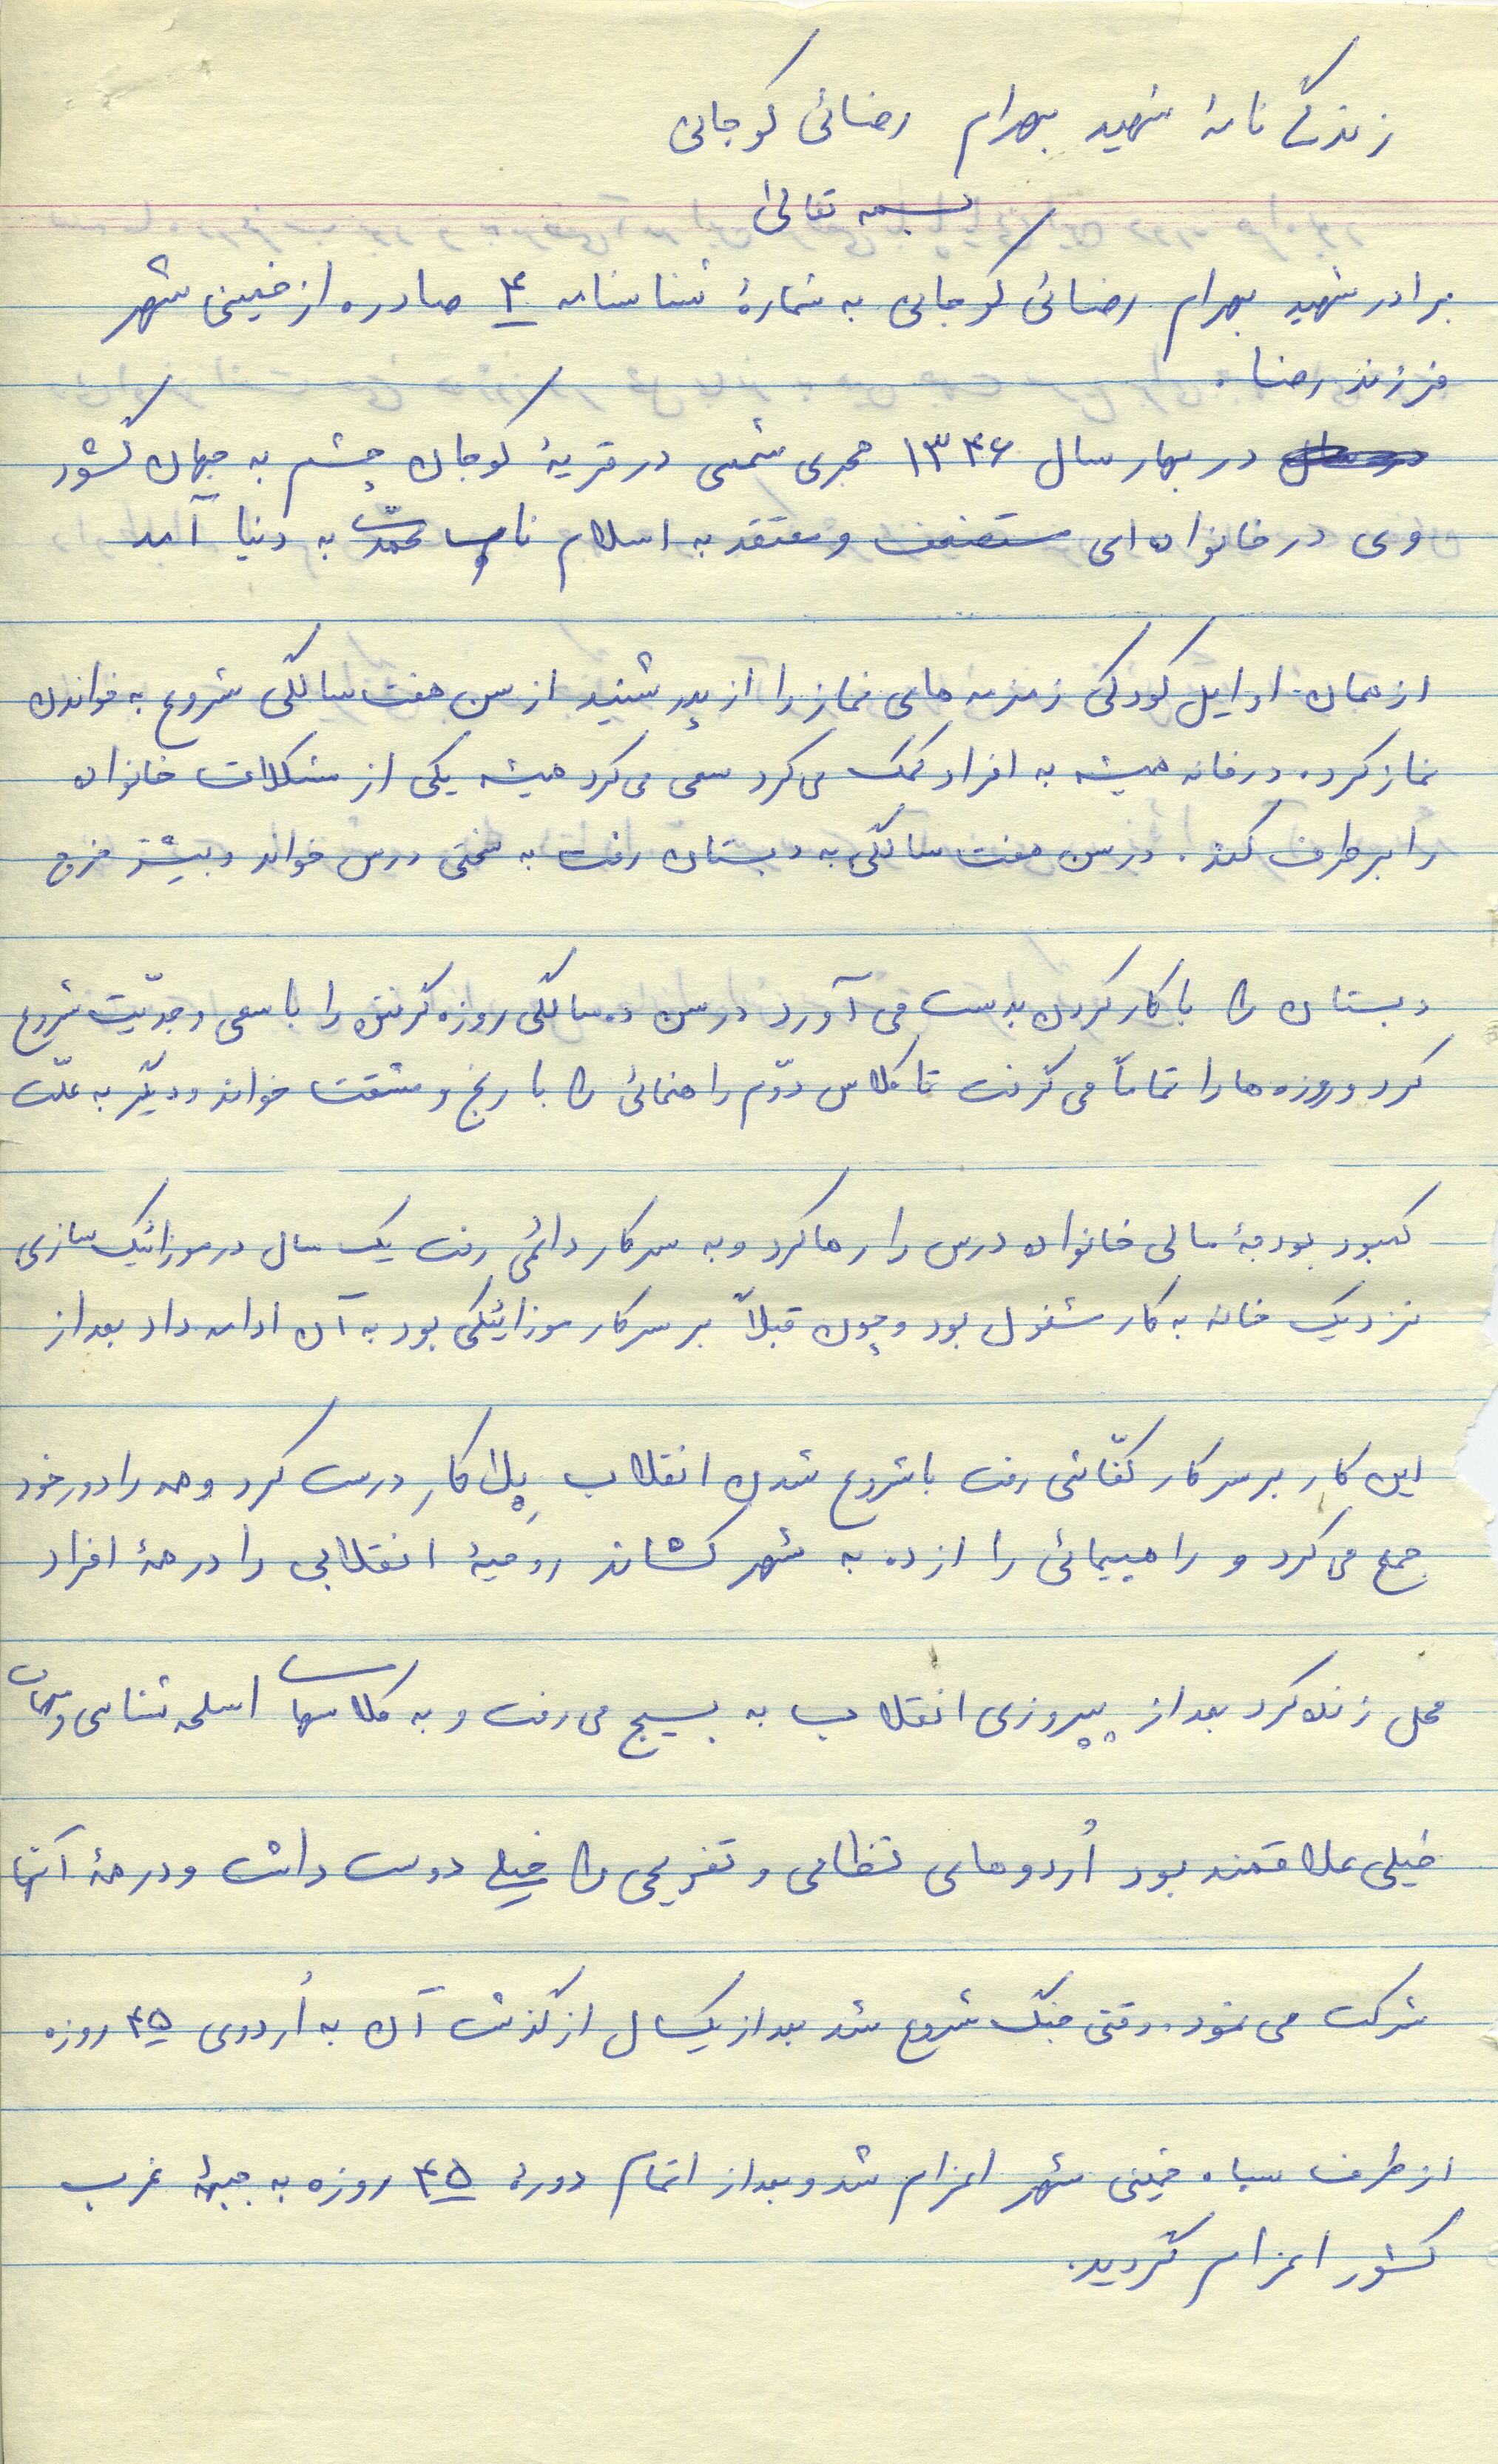 زندگی نامهٔ شهید بهرام رضائی کوجانی
بسمه تعالی
برادر شهید بهرام رضائی کوجانی به شمارهٔ شناسنامه ۴ صادره از خمینی شهر
فرزند رضا.
در بهار سال ۱۳۴۶ هجری شمسی در قریهٔ کوجان چشم به جهان گشود
وی در خانواده‌ای مستضعف و معتقد به اسلام ناب محمدّی به دنیا آمد
از همان اوایل کودکی زمزمه های نماز را از پدر شنید از سن هفت سالگی شروع به خواندن
نماز کرد. در خانه همیشه به افراد کمک می کرد سعی می کرد همیشه یکی از مشکلات خانواده
را برطرف کند. در سن هفت سالگی به دبستان رفت به سختی درس خواند و بیشتر خرج
دبستان را با کار کردن بدست می آورد در سن ده سالگی روزه گرفتن را با سعی و جدّیت شروع
کرد و روزه ها را تماماً می گرفت تا کلاس دوّم راهنمائی را با رنج و مشقت خواند و دیگر به علّت
کمبود بودجهٔ مالی خانواده درس را رها کرد و به سر کار دائمی رفت یک سال در موزائیک سازی
نزدیک خانه به کار مشغول بود و چون قبلاً بر سر کار موزائیکی بود به آن ادامه داد بعد از
این کار بر سر کار کفّاشی رفت با شروع شدن انقلاب پِلاکارد درست کرد و همه را دور خود
جمع می کرد و راهپیمائی را از ده به شهر کشاند روحیهٔ انقلابی را در همهٔ افراد
محل زنده کرد بعد از پیروزی انقلاب به بسیج می رفت و به کلاسهای اسلحه شناسی و
خیلی علاقمند بود اُردوهای نظامی و تفریحی را خیلی دوست داشت و در همهٔ آنها
شرکت می نمود. وقتی جنگ شروع شد بعد از یکسال از گذشت آن به اُردوی ۴۵ روزه
از طرف سپاه خمینی شهر اعزام شد و بعد از اتمام دورهٔ ۴۵ روزه به جبههٔ غرب
کشور اعزام گردید.